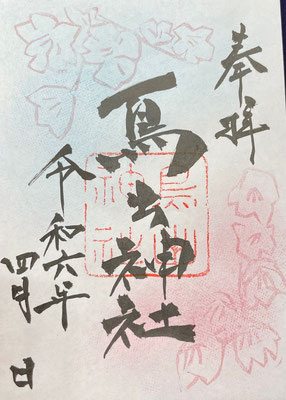 奉拝
鳥出神社
令和六年
四月 日
鳥出
神社